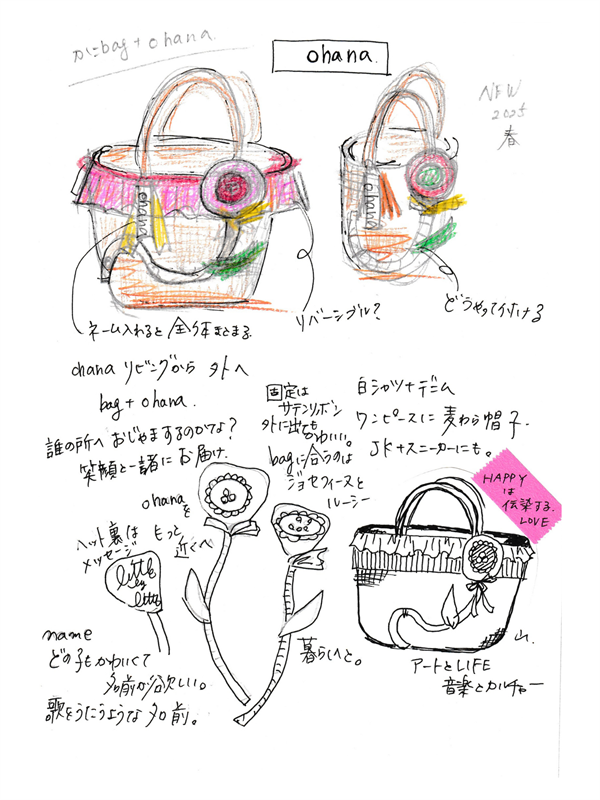 かにbag + ohana.
ohana.
NEW
2025
春
ohana
ohana
ネーム入れると全体まとまる.
リバーシブル?
どうやって付ける
ohana リビングから 外へ
bag + ohana.
誰の所へ おじゃまするのかな?
笑顔と一緒に お届け.
固定は
サテンリボン
外に出ても
かわいい。
bagに合うのは
ジョセフィーヌと
ルーシー
白シャツ+デニム
ワンピースに 麦わら帽子.
JK+スニーカーにも。
HAPPY
は
伝染する.
LOVE
ohana
を
もっと
近くへ
ヘット裏は
メッセージ
little
by
little
name
どの子もかわいくて
名前が欲しい。
歌をうたうような 名前。
暮らしへと。
山.
アートとLIFE
音楽とカルチャー